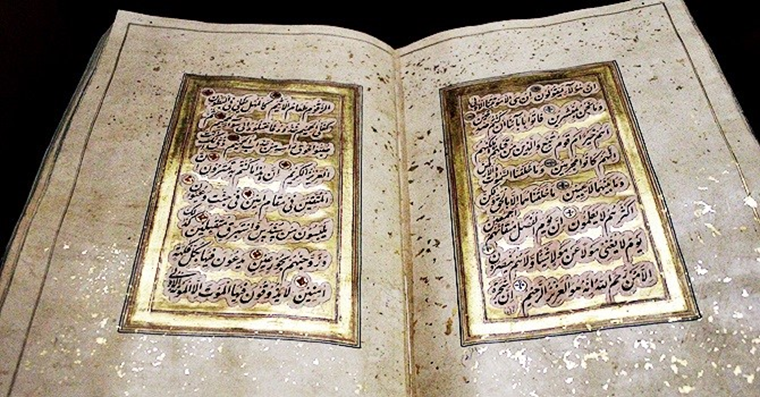 ان هؤلاء ليقولون ان هى الا موتتنا الاولى
وما نحن بمنشرين فاتوا بابائنا ان كنتم صادقين
اهم خير ام قوم تبع والذين من قبلهم
اهلكناهم انهم كانوا مجرمين وما خلقنا السموات والارض
وما بينهما لاعبين ما خلقناهما الا بالحق ولكن
اكثرهم لا يعلمون ان يوم الفصل ميقاتهم اجمعين
يوم لا يغنى مولى عن مولى شيئا ولا هم ينصرون
الا من رحم الله انه هو العزيز الرحيم ان شجرة
الزقوم طعام الاثيم كالمهل يغلى فى البطون
كغلى الحميم خذوه فاعتلوه الى سواء الجحيم
ثم صبوا فوق راسه من عذاب الحميم ذق انك انت
العزيز الكريم ان هذا ما كنتم به تمترون ان
المتقين فى مقام امين فى جنات وعيون
يلبسون من سندس واستبرق متقابلين كذلك
وزوجناهم بحور عين يدعون فيها بكل فاكهة
امنين لا يذوقون فيها الموت الا الموتة الاولى